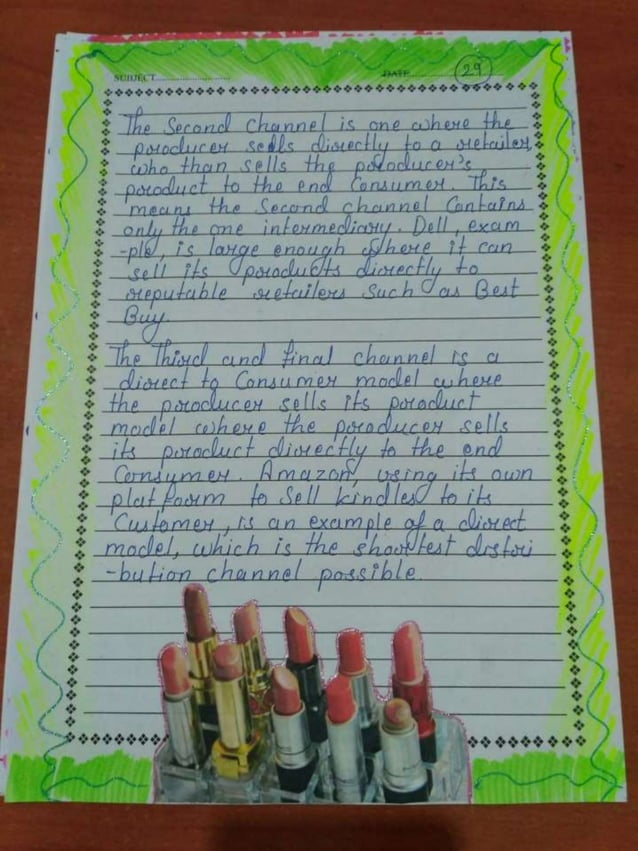 SUBJECT
DATE 29
The Second Channel is one where the
producer sells directly to a retailer,
who than sells the producer's
product to the end Consumer. This
means the Second channel Contains
only the one intermediary. Dell, exam
-ple, is large enough where it can
sell its products directly to
reputable retailers Such as Best
Buy.
The Third and final channel is a
direct to Consumer model where
the producer sells its product
model where the producer sells
its product directly to the end
Consumer. Amazon, using its own
platform to Sell kindles to its
Customer, is an example of a direct
model, which is the shortest distri
-bution channel possible.